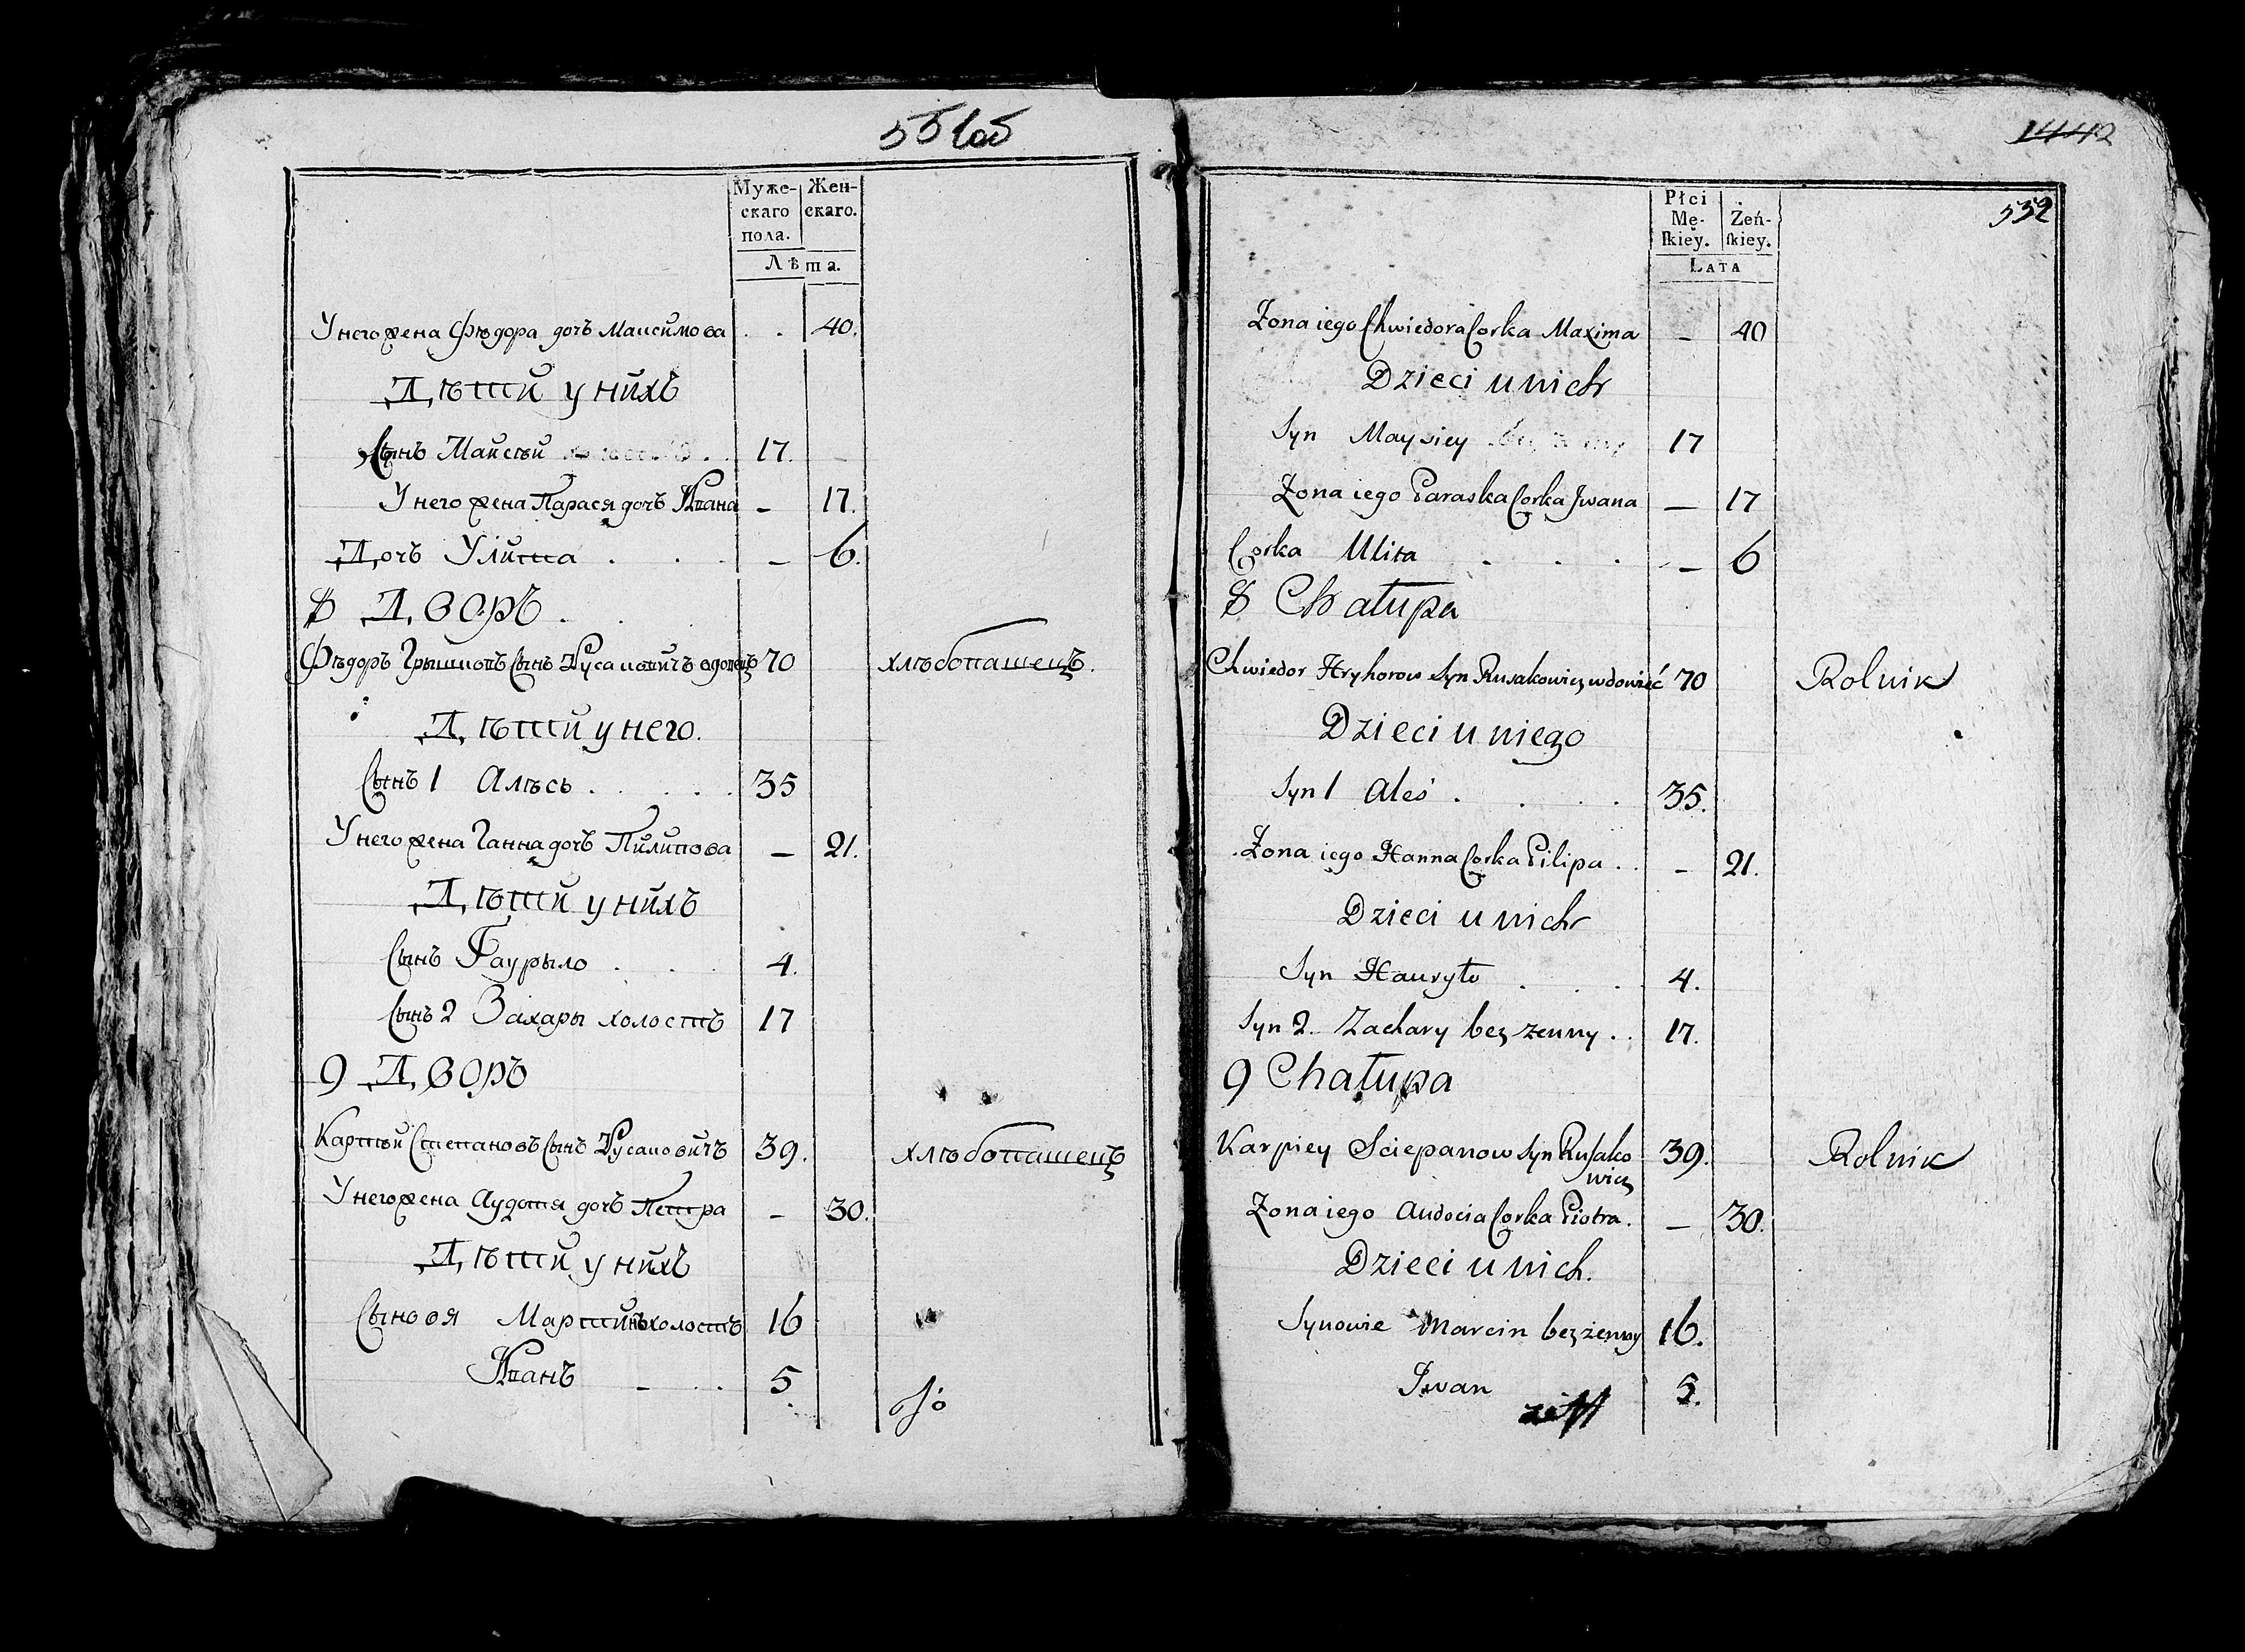 551об
Муже- Жен-
скаго скаго.
пола.
Лѣта.
У него жена Фѣдора дочъ Максимова . . 40.
Дѣти у нихъ
Сынъ Майсѣй 17.
У него жена Парася дочъ Ивана – 17.
Дочъ Улита . . . – 6.
8 Дворъ .
Фѣдоръ Грышковъ Сынъ Русаковичъ вдовецъ 70 хлѣбопашецъ.
Дѣти у него.
Сынъ 1 Алѣсь . . . . . 35
У него жена Ганна дочъ Пилипова – 21.
Дѣти у нихъ
Сынъ Гаурыло . . . 4.
Сынъ 2 Захары холостъ 17
9 Дворъ
Карпѣй Степановъ Сынъ Русаковичъ 39. хлѣбопашецъ
У него жена Аудотя дочъ Петра – 30.
Дѣти у нихъ
Сыновя Мартинъ холостъ 16
Иванъ – . . 5.
1442
552
Płci
Mę- Żeń-
skiey. skiey.
LATA
Zona iego Chwiedora Corka Maxima – 40
Dzieci u nich
Syn Maysiey 17
Zona iego Paraska Corka Jwana – 17
Corka Ulita . . . – 6
8 Chałupa
Chwiedor Hryhorow Syn Rusakowicz wdowieć 70 Rolnik
Dzieci u niego
Syn 1 Aleś . . . . 35.
Zona iego Hanna Corka Pilipa . . – 21.
Dzieci u nich
Syn Hauryło . . . 4.
Syn 2. Zachary bez zenny . . 17.
9 Chałupa
Karpiey Sciepanow Syn Rusako 39. Rolnik
wicz
Zona iego Audocia Corka Piotra . – 30.
Dzieci u nich.
Synowie Marcin bez żenny 16.
Jwan 5.